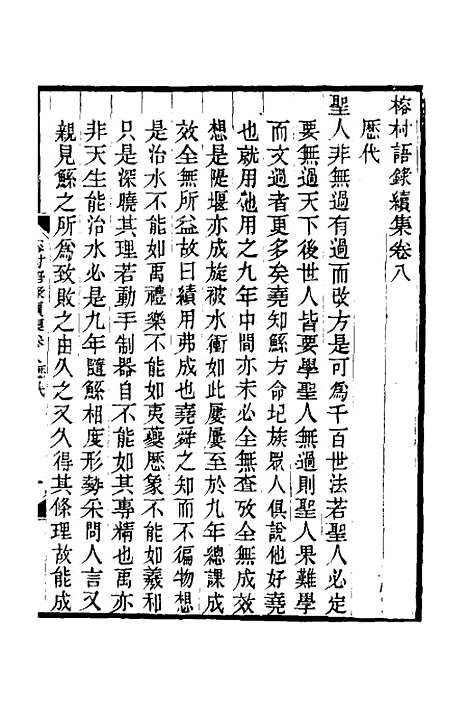 榕村語錄續集卷八
歷代
聖人非無過有過而改方是可爲千百世法若聖人必定
要無過天下後世人皆要學聖人無過則聖人果難學
而文過者更多矣堯知鯀方命圮族眾人俱說他好堯
也就用他用之九年中間亦未必全無查攷全無成效
想是隄堰亦成旋被水衝如此屢屢至於九年總課成
效全無所益故曰績用弗成也堯舜之知而不徧物想
是治水不能如禹禮樂不能如夷夔歷象不能如羲和
只是深曉其理若動手制器自不能如其專精也禹亦
非天生能治水必是九年隨鯀相度形勢采問人言又
親見鯀之所爲致敗之由久之又久得其條理故能成